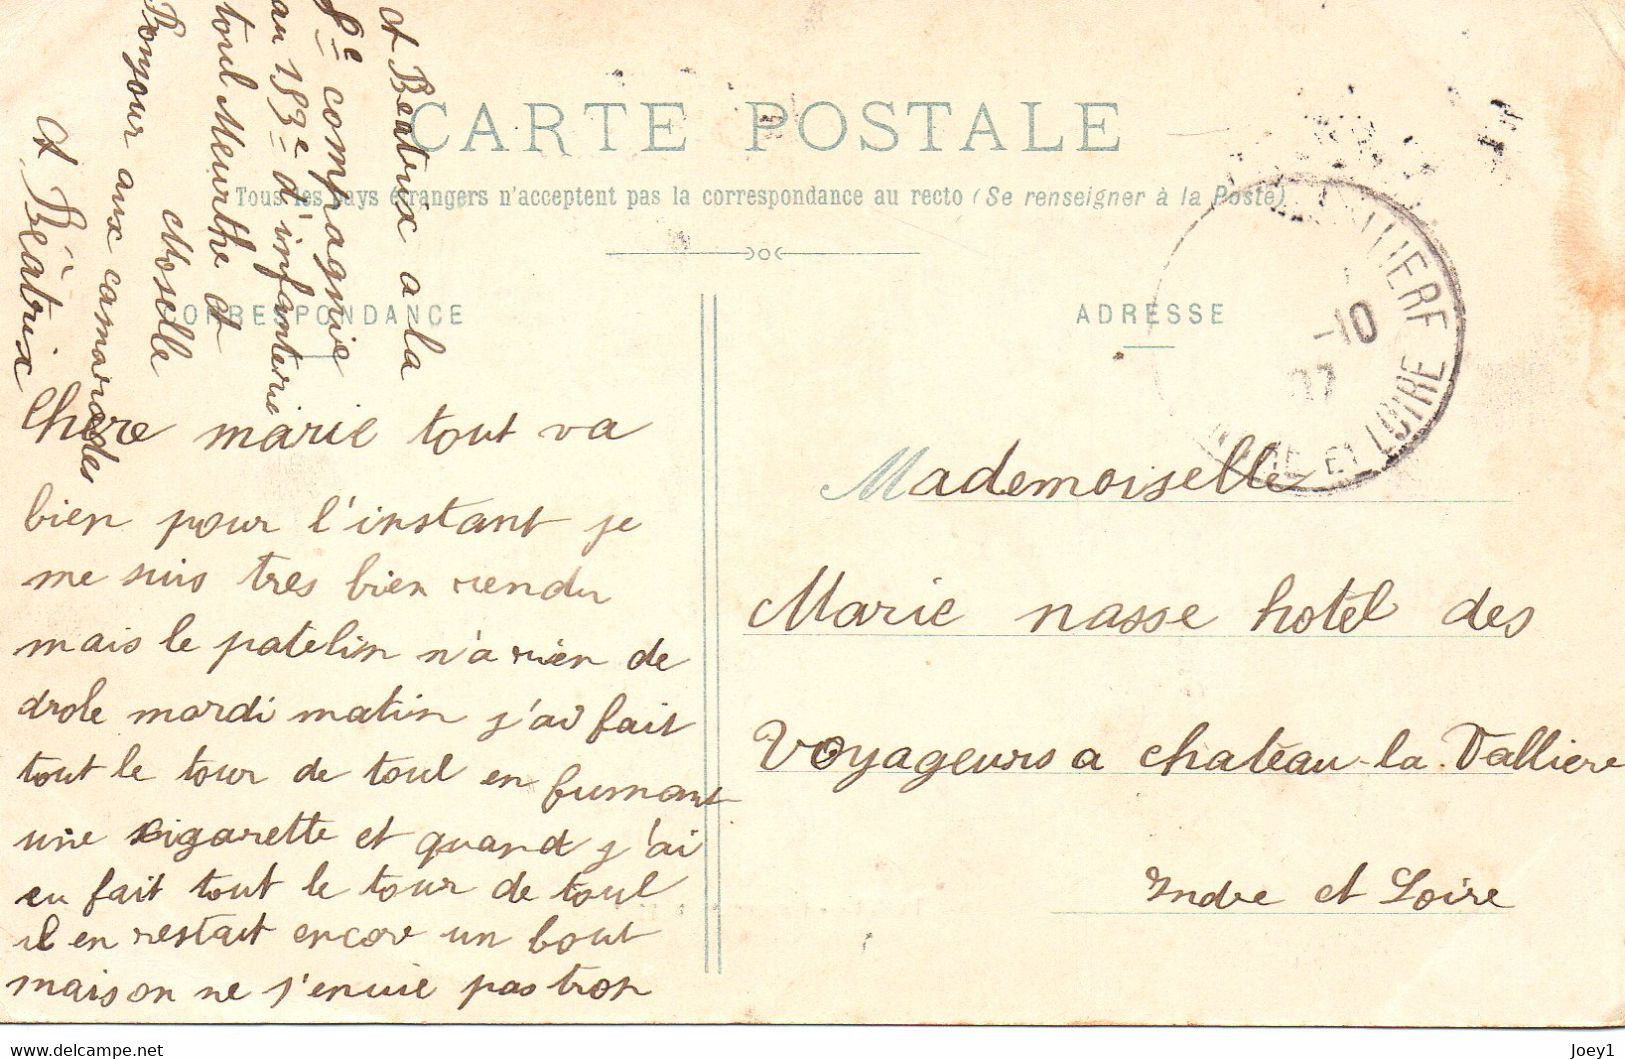 CARTE POSTALE
Tous les pays étrangers n'acceptent pas la correspondance au recto (Se renseigner à la Poste)
CORRESPONDANCE
ADRESSE
A Béatrix a la
8e compagnie
au 153e d'infanterie
toul Meurthe et
Moselle
Bonjour aux camarades
A Béatrix
Chere marie tout va
bien pour l'instant je
me suis tres bien rendu
mais le patelin n'a rien de
drole mardi matin j'ai fait
tout le tour de toul en fumant
une cigarette et quand j'ai
eu fait tout le tour de toul
il en restait encore un bout
mais on ne s'enuie pas trop
Mademoiselle
Marie nasse hotel des
Voyageurs a chateau-la-Valliere
Indre et Loire
-10
07
INDRE ET LOIRE
delcampe.net
Joey1